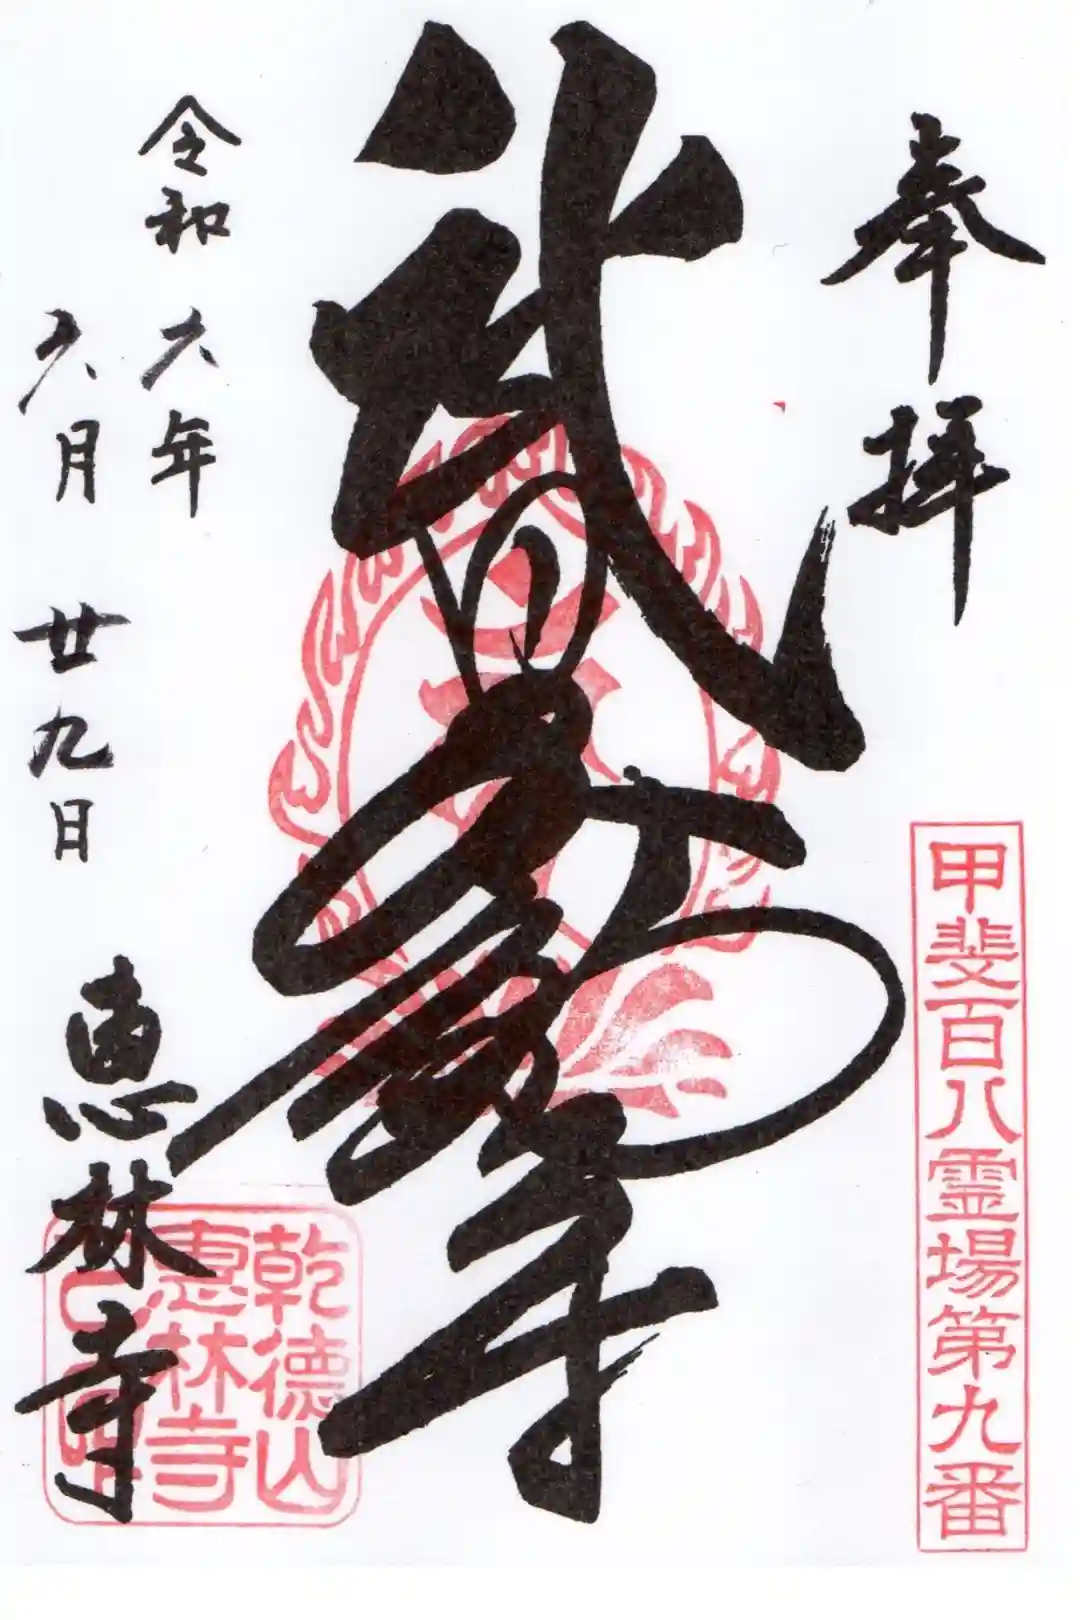 奉拝
甲斐百八霊場第九番
武田不動尊
令和六年
六月廿九日
恵林寺
乾徳山
惠林寺